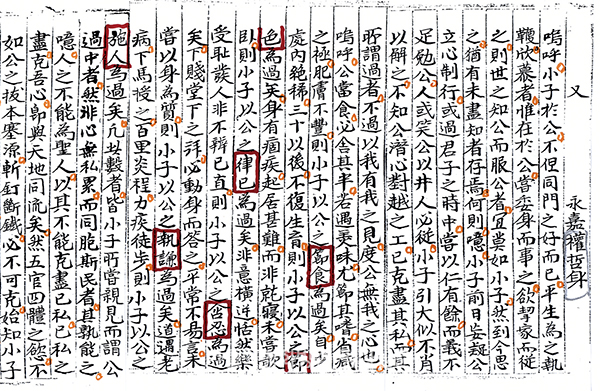 又 永嘉權哲身
嗚呼小子於公不但同門之好而已平生為之執
鞭欣慕者惟在於公嘗委身而事之欲挈家而從
之則世之知公而服公者宜莫如小子然到今思
之猶有未盡知者存焉何則噫小子前日妄疑公
立心制行或過君子之時中嘗以仁有餘而義不
足勉公人或笑公以井人必從小子引大似不肖
以解之不知公潜心對越之工已克盡其私而其
所謂過者不過以我有我之見度公無我之心也
嗚呼公當食必舍其半若遇美味尤節其嗜省減
之極肌膚不豊則小子以公之節食為過矣自
處內絶稀三十以後不復生子則小子以公之節
色為過矣身有痼疾起居甚難而非就寝未嘗欹
臥則小子以公之律己為過矣非意橫逆恬然樂
受恥談人非不辯己直則小子以公之含忍為過
矣下賤堂下之拜必動身而答之平常不易言未
嘗以身為質則小子以公之執謙為過矣道遇老
病下馬授之百里炎程力疾徒步則小子以公之
施人為過矣凡此數者皆小子所嘗親見而謂公
過中者然非心無私累而同胞斯民者其孰能之
噫人之不能為聖人以其不能克盡己私己私之
盡克吾心卽與天地同流矣然五官四體之欲不
如公之拔本塞源斬釘斷鐵必不可克始知小子